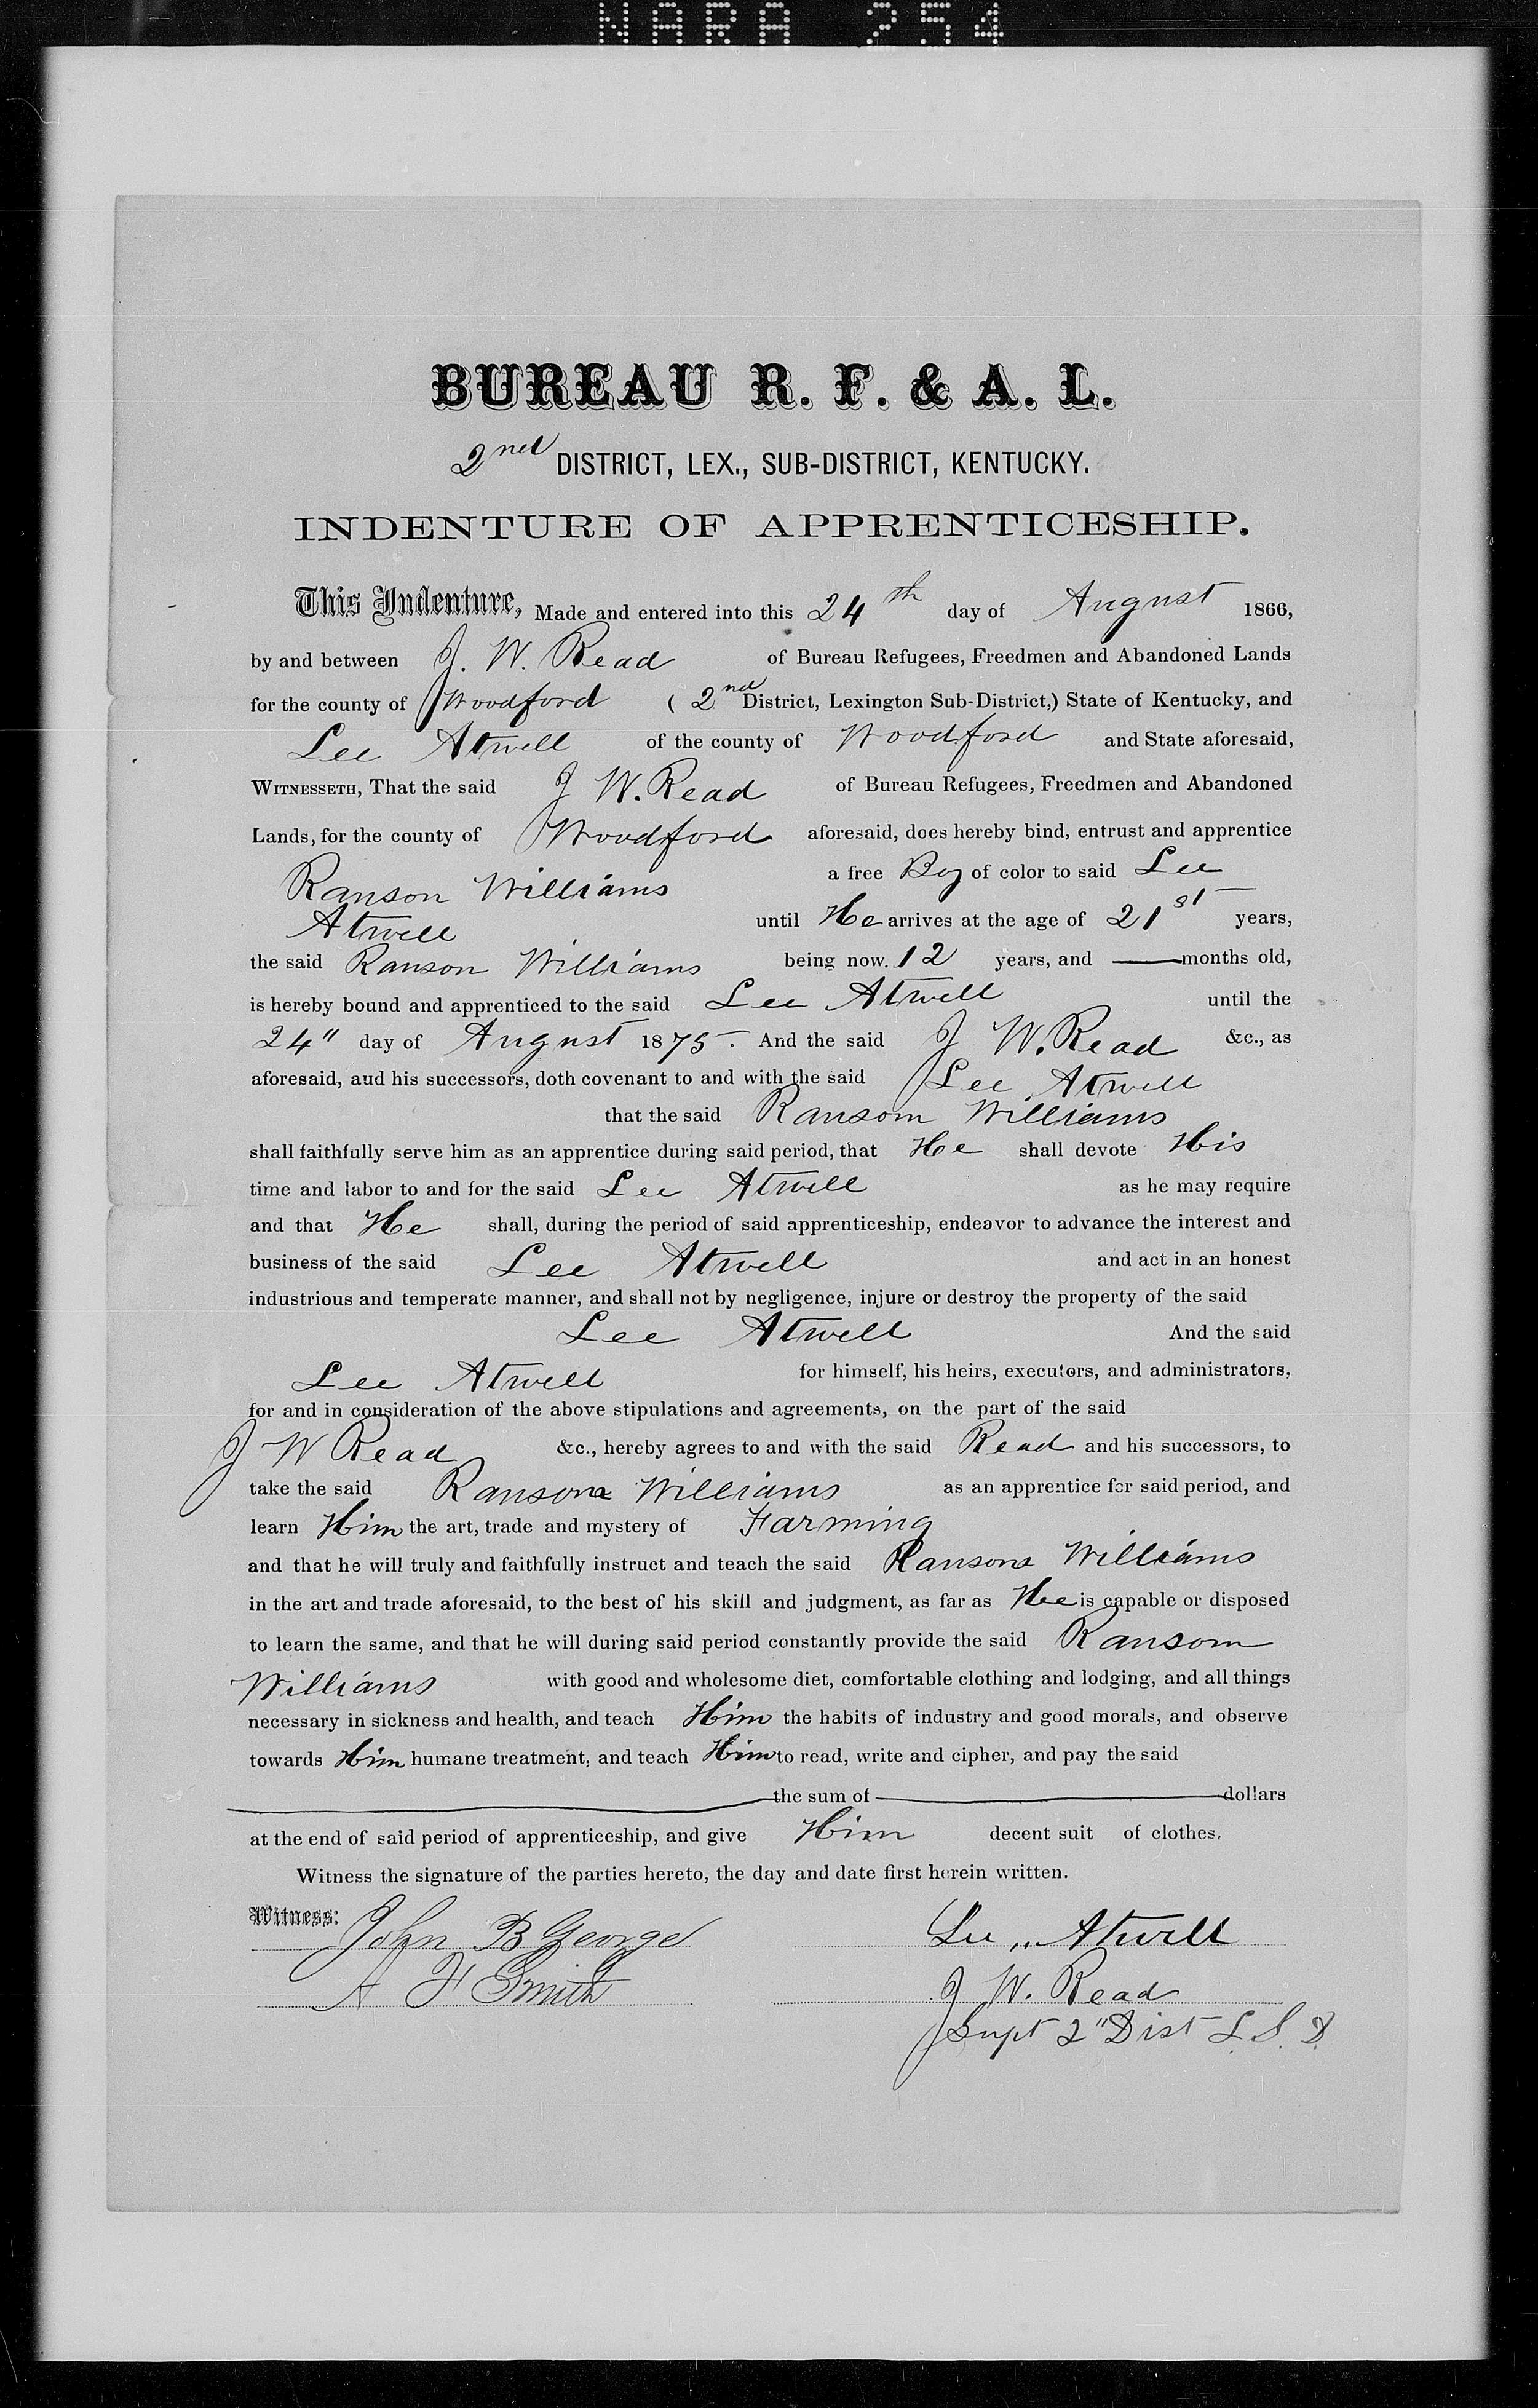 NARA 254
BUREAU R. F. & A. L.
2nd DISTRICT, LEX., SUB-DISTRICT, KENTUCKY.
INDENTURE OF APPRENTICESHIP.
This Indenture, Made and entered into this 24th day of August 1866,
by and between J. W. Read of Bureau Refugees, Freedmen and Abandoned Lands
for the county of Woodford ( 2nd District, Lexington Sub-District,) State of Kentucky, and
Lee Atwell of the county of Woodford and State aforesaid,
WITNESSETH, That the said J W. Read of Bureau Refugees, Freedmen and Abandoned
Lands, for the county of Woodford aforesaid, does hereby bind, entrust and apprentice
Ranson Williams a free Boy of color to said Lee
Atwell until He arrives at the age of 21st years,
the said Ranson Williams being now. 12 years, and — months old,
is hereby bound and apprenticed to the said Lee Atwell until the
24" day of August 1875. And the said J W. Read &c., as
aforesaid, aud his successors, doth covenant to and with the said Lee Atwell
that the said Ransom Williams
shall faithfully serve him as an apprentice during said period, that He shall devote His
time and labor to and for the said Lee Atwell as he may require
and that He shall, during the period of said apprenticeship, endeavor to advance the interest and
business of the said Lee Atwell and act in an honest
industrious and temperate manner, and shall not by negligence, injure or destroy the property of the said
Lee Atwell And the said
Lee Atwell for himself, his heirs, executors, and administrators,
for and in consideration of the above stipulations and agreements, on the part of the said
J W Read &c., hereby agrees to and with the said Read and his successors, to
take the said Ransom Williams as an apprentice for said period, and
learn Him the art, trade and mystery of Farming
and that he will truly and faithfully instruct and teach the said Ransom Williams
in the art and trade aforesaid, to the best of his skill and judgment, as far as He is capable or disposed
to learn the same, and that he will during said period constantly provide the said Ransom
Williams with good and wholesome diet, comfortable clothing and lodging, and all things
necessary in sickness and health, and teach Him the habits of industry and good morals, and observe
towards Him humane treatment, and teach Him to read, write and cipher, and pay the said
— the sum of — dollars
at the end of said period of apprenticeship, and give Him decent suit of clothes.
Witness the signature of the parties hereto, the day and date first herein written.
Witness:
John B George Lee Atwell
A F Smith J W. Read
Supt 2" Dist L. S. D.